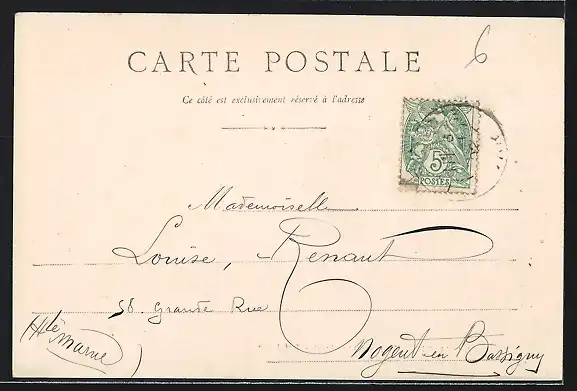 6
CARTE POSTALE
Ce côté est exclusivement réservé à l'adresse
5
POSTES
Mademoiselle
Louise, Renaut
58. Grande Rue
Nogent en Bassigny
(Hte Marne)